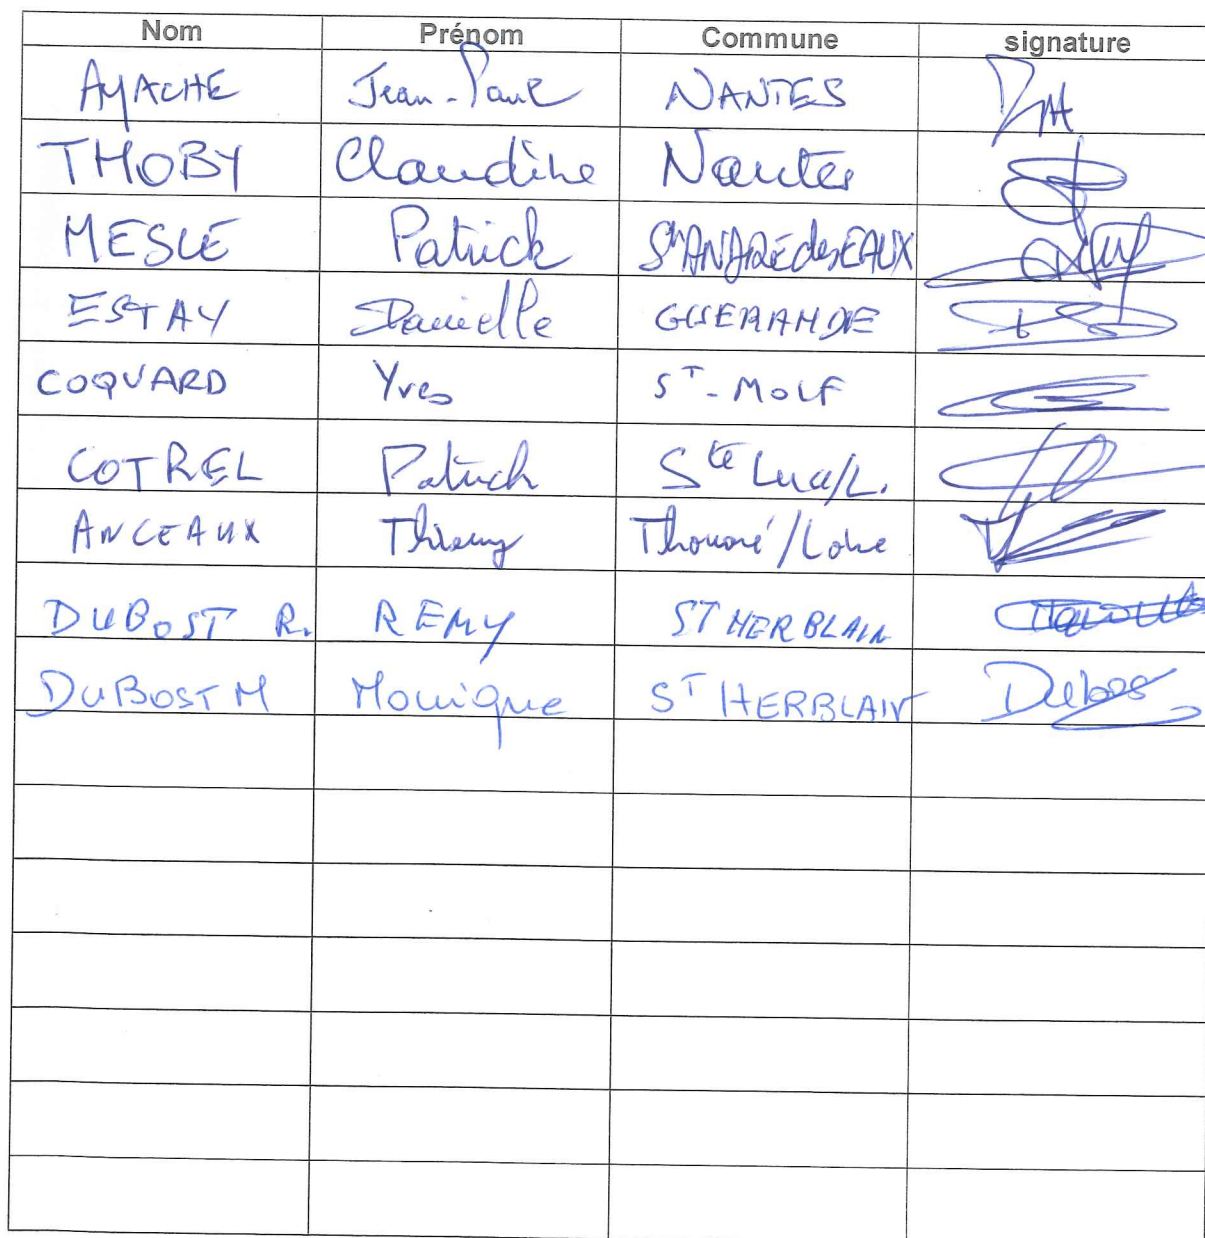 Nom Prénom Commune signature
AYACHE Jean-Paul NANTES
THOBY Claudine Nantes
MESLE Patrick St ANDRÉ des EAUX
ESTAY Danielle GUERANDE
COQUARD Yves ST-MOLF
COTREL Patrick Ste Luce/L.
ANCEAUX Thierry Thouaré/Loire
DUBOST R. REMY ST HERBLAIN
DUBOST M Monique ST HERBLAIN